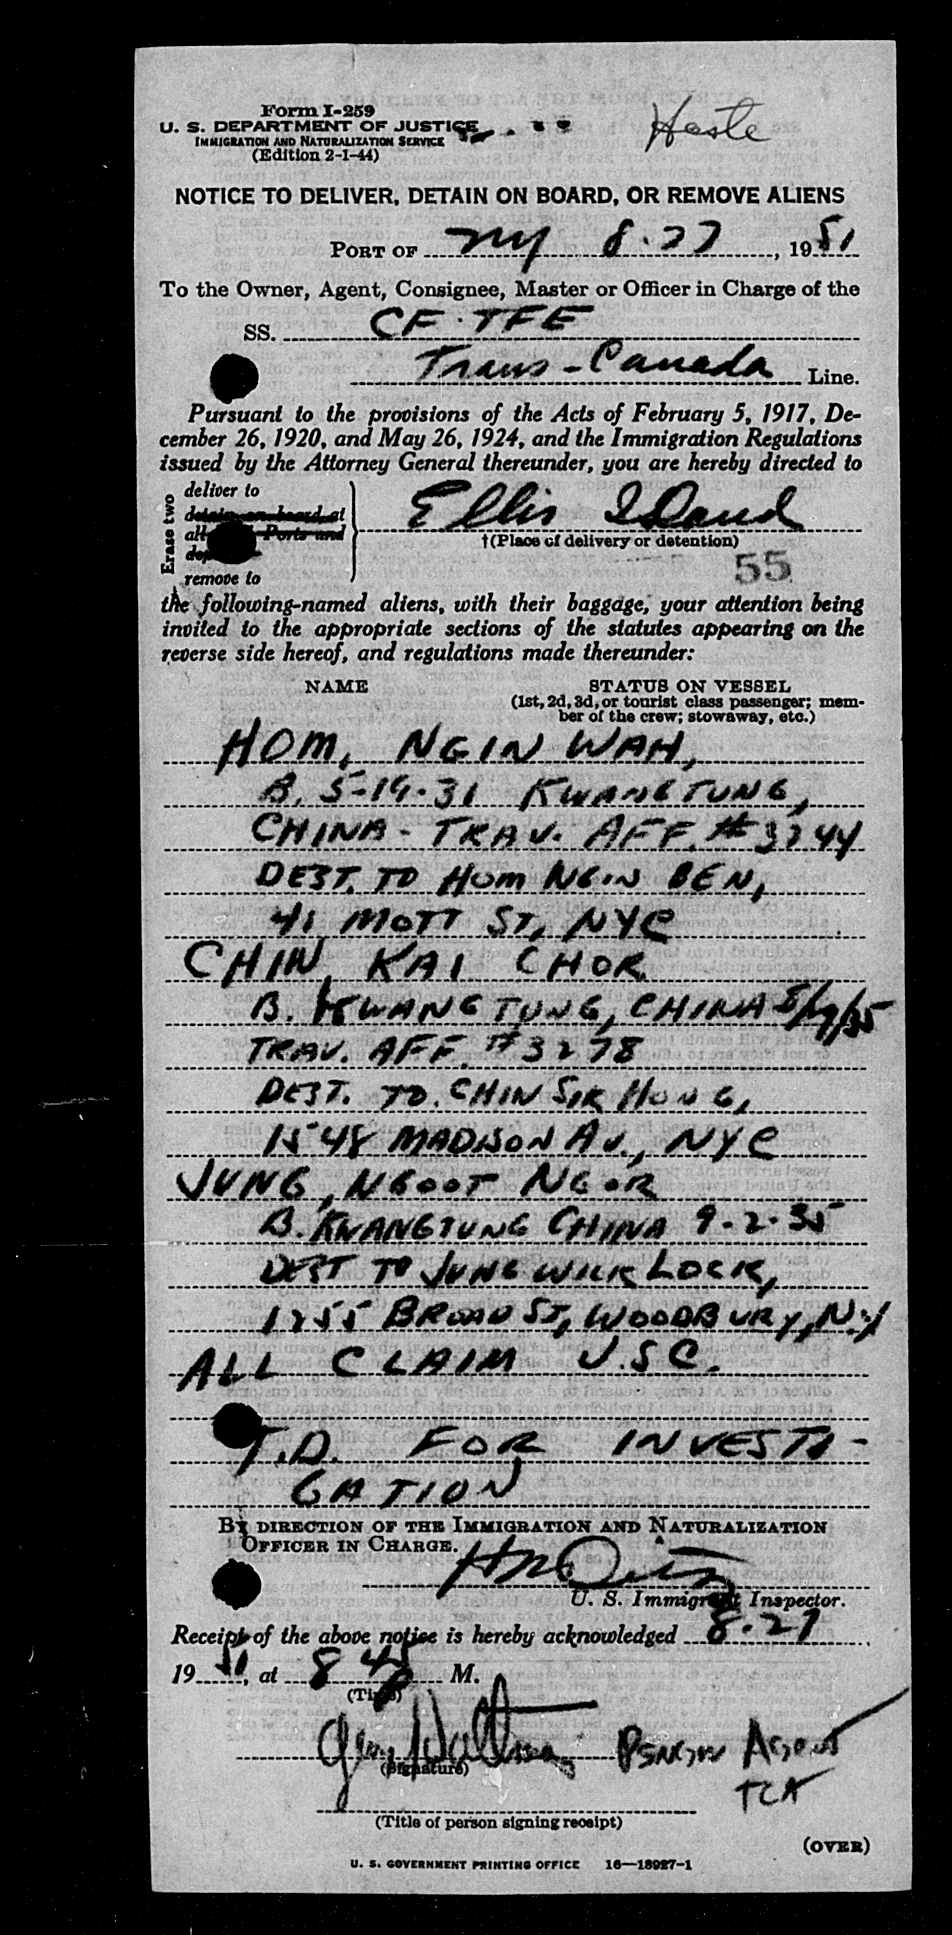 Form I-259
U. S. DEPARTMENT OF JUSTICE
IMMIGRATION AND NATURALIZATION SERVICE
(Edition 2-1-44)
NOTICE TO DELIVER, DETAIN ON BOARD, OR REMOVE ALIENS
PORT OF NY 8.27, 1951
To the Owner, Agent, Consignee, Master or Officer in Charge of the
SS. CF-TFE
Trans-Canada Line.
Pursuant to the provisions of the Acts of February 5, 1917, De-
cember 26, 1920, and May 26, 1924, and the Immigration Regulations
issued by the Attorney General thereunder, you are hereby directed to
Erase two
deliver to
detain on board at
all Ports and
remove to
Ellis Island
†(Place of delivery or detention)
55
the following-named aliens, with their baggage, your attention being
invited to the appropriate sections of the statutes appearing on the
reverse side hereof, and regulations made thereunder:
NAME STATUS ON VESSEL
(1st, 2d, 3d, or tourist class passenger; mem-
ber of the crew; stowaway, etc.)
HOM, NGIN WAH,
B. 5-19-31 KWANGTUNG,
CHINA - TRAV. AFF. #3244
DEST. TO HOM NGIN BEN,
41 MOTT ST, NYC
CHIN, KAI CHOR
B. KWANGTUNG, CHINA 8/19/35
TRAV. AFF. #3278
DEST. TO. CHIN SIK HONG,
1548 MADISON AV., NYC
JUNG, NGOOT NGOR
B. KWANGTUNG CHINA 9-2-35
DEST TO JUNG WICK LOCK,
1255 BROAD ST, WOODBURY, N.Y
ALL CLAIM U.S.C.
T.D. FOR INVESTI-
GATION
BY DIRECTION OF THE IMMIGRATION AND NATURALIZATION
OFFICER IN CHARGE.
U. S. Immigrant Inspector.
Receipt of the above notice is hereby acknowledged 8.27
1951, at 8 45 M.
(Time)
(Signature)
Agent
TCA
(Title of person signing receipt)
(OVER)
U. S. GOVERNMENT PRINTING OFFICE 16—18927-1